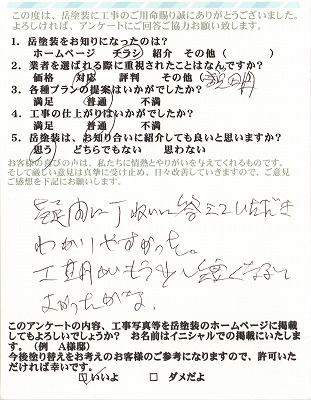 この度は、岳塗装に工事のご用命賜り誠にありがとうございました。
よろしければ、アンケートにご回答ご協力お願い致します。
1. 岳塗装をお知りになったのは?
ホームページ チラシ 紹介 その他( )
2. 業者を選ばれる際に重視されたことはなんですか?
価格 対応 評判 その他( 説明 )
3. 各種プランの提案はいかがでしたか?
満足 普通 不満
4. 工事の仕上がりはいかがでしたか?
満足 普通 不満
5. 岳塗装は、お知り合いに紹介しても良いと思いますか?
思う どちらでもない 思わない
お客様の喜びの声は、私たちに情熱とやりがいを与えてくれるものです。
そして厳しい意見は真摯に受け止め、日々改善していきますので、ご意見
ご感想を下記にお願いします。
疑問に丁寧に答えていただき
わかりやすかった。
工期がもう少し短くなると
よかったかな。
このアンケートの内容、工事写真等を岳塗装のホームページに掲載
してもよろしいでしょうか? お名前はイニシャルでの掲載にいたしま
す。(例 A様邸)
今後塗り替えをお考えのお客様のご参考になりますので、許可いた
だければ幸いです。
☑いいよ □ ダメだよ